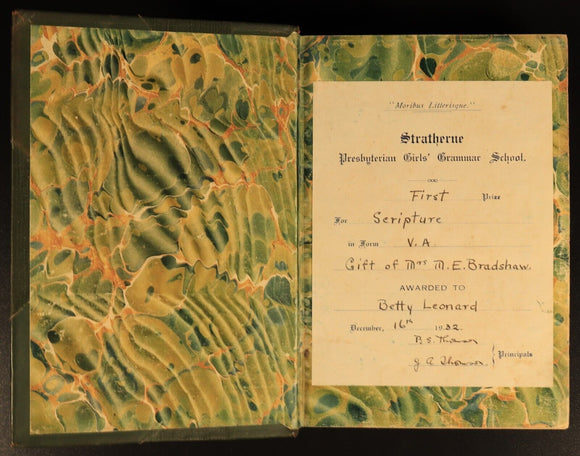 "Moribus Litterisque."
Stratherne
Presbyterian Girls' Grammar School.
First Prize
For Scripture
in Form V. A
Gift of Mrs M. E. Bradshaw.
AWARDED TO
Betty Leonard
December, 16th 1932
P. S.
J. A. Thomson
Principals